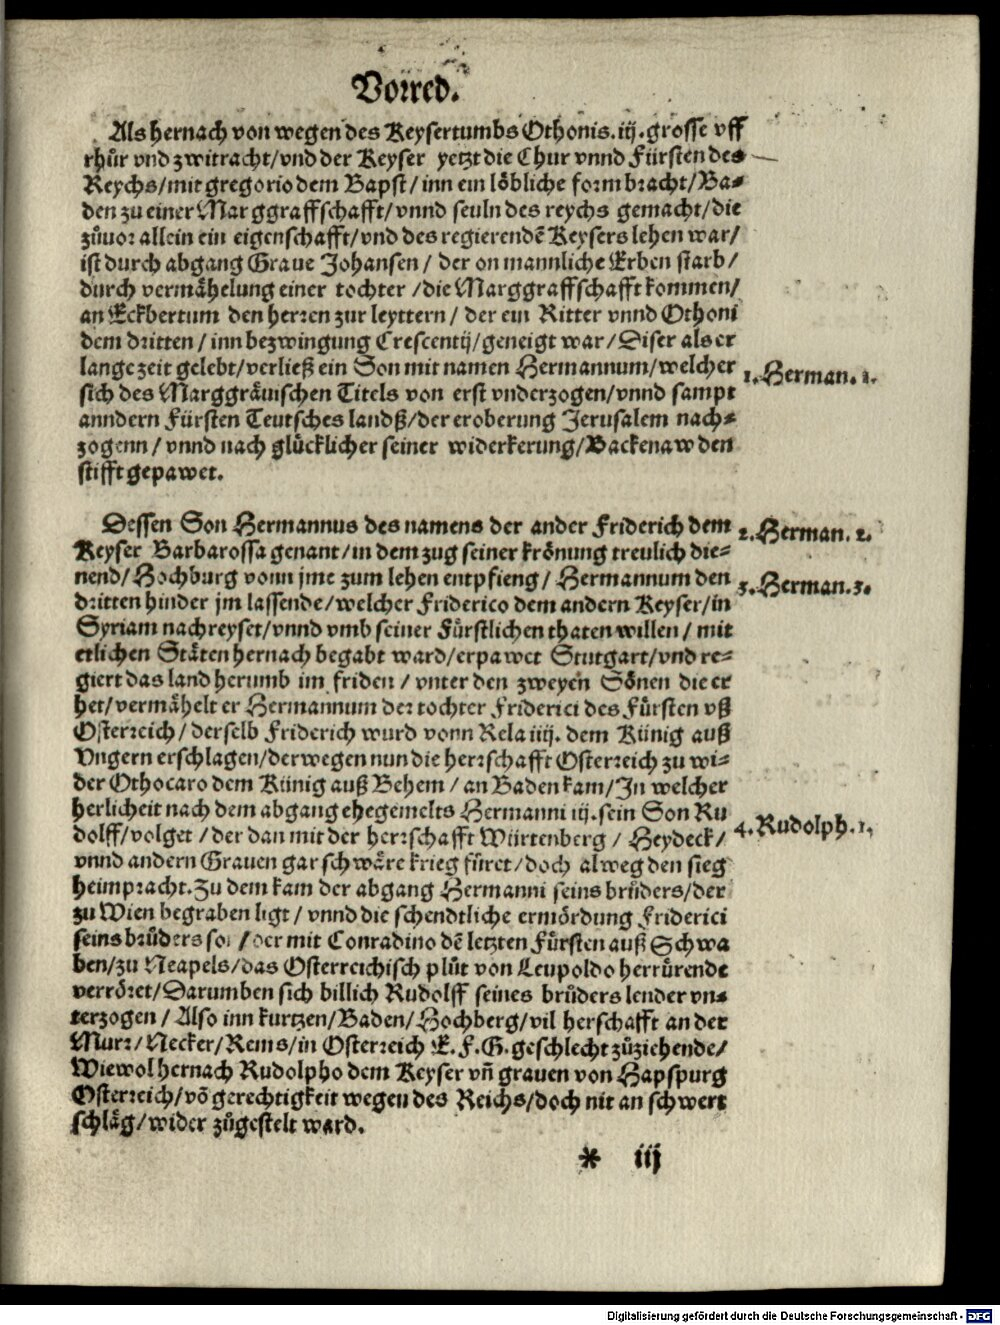 Vorred.
Als hernach von wegen des Keysertumbs Othonis.iij.grosse vff
rhůr vnd zwitracht/vnd der Keyser yetzt die Chur vnnd Fürsten des
Reychs/mit gregorio dem Bapst/inn ein löbliche form bracht/Ba-
den zu einer Marggraffschafft/vnnd seuln des reychs gemacht/die
zůuor allein ein eigenschafft/vnd des regierendē Keysers lehen war/
ist durch abgang Graue Johansen/ der on mannliche Erben starb/
durch vermähelung einer tochter /die Marggraffschafft kommen/
an Eckbertum den herren zur leyttern/ der ein Ritter vnnd Othoni
dem dritten/inn bezwingung Crescentij/geneigt war/Diser als er
lange zeit gelebt/verließ ein Son mit namen Hermannum/welcher
1.Herman.1.
sich des Marggräuischen Titels von erst vnderzogen/vnnd sampt
anndern Fürsten Teutsches landß/der eroberung Jerusalem nach-
zogenn/vnnd nach glücklicher seiner widerkerung/Backenaw den
stifft gepawet.
Dessen Son Hermannus des namens der ander Friderich dem
2.Herman.2.
Keyser Barbarossa genant/in dem zug seiner krönung treulich die-
nend/Hochburg vonn jme zum lehen entpfieng/ Hermannum den
3.Herman.3.
dritten hinder jm lassende/welcher Friderico dem andern Keyser/in
Syriam nachreyset/vnnd vmb seiner Fürstlichen thaten willen/ mit
etlichen Stäten hernach begabt ward/erpawet Stutgart/vnd re-
giert das land herumb im friden/vnter den zweyen Sönen die er
het/vermähelt er Hermannum der tochter Friderici des Fürsten vß
Osterreich/derselb Friderich wurd vonn Rela iiij. dem Künig auß
Vngern erschlagen/derwegen nun die herrschafft Osterreich zu wi-
der Othocaro dem Künig auß Behem/an Baden kam/In welcher
herlicheit nach dem abgang ehegemelts Hermanni iij.sein Son Ru
dolff/volget/der dan mit der herrschafft Würtenberg/ Heydeck/
4.Rudolph.1.
vnnd andern Grauen gar schwäre krieg füret/doch alweg den sieg
heimpracht.Zu dem kam der abgang Hermanni seins brüders/der
zu Wien begraben ligt/vnnd die schendtliche ermördung Friderici
seins brüders /der mit Conradino dē letzten Fürsten auß Schwa
ben/zu Neapels/das Osterreichisch plůt von Leupoldo herrürende
verröret/Darumben sich billich Rudolff seines brüders lender vn-
terzogen/Also inn kurtzen/Baden/Hochberg/vil herschafft an der
Murr/Necker/Rems/in Osterreich E.F.G.geschlecht zůziehende/
Wiewol hernach Rudolpho dem Keyser vñ grauen von Hapspurg
Osterreich/vō gerechtigkeit wegen des Reichs/doch nit an schwert
schläg/wider zůgestelt ward.
* iij
Digitalisierung gefördert durch die Deutsche Forschungsgemeinschaft - DFG